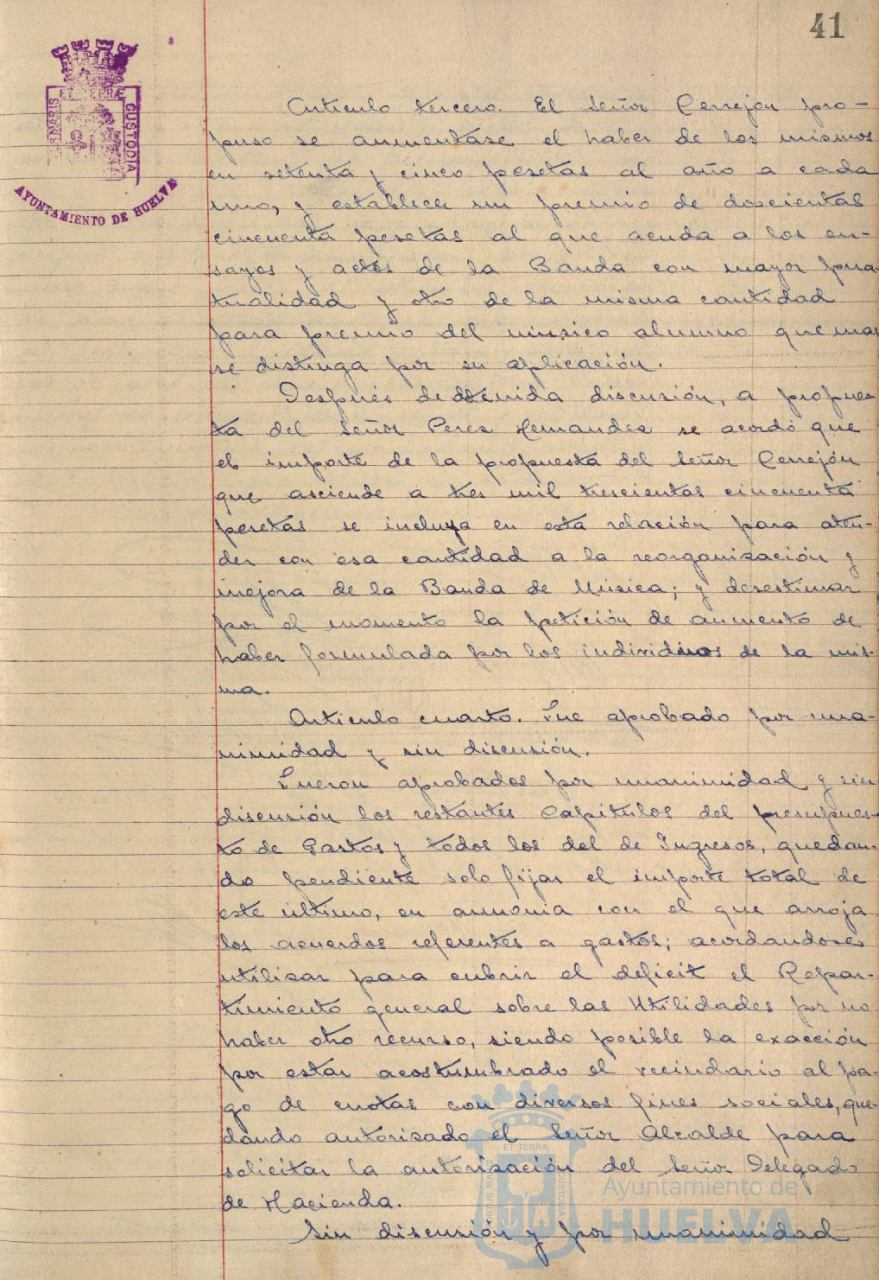 41
ET TERRÆ
MARIS
CUSTODIA
AYUNTAMIENTO DE HUELVA
Articulo tercero. El Señor Cerrejón pro-
puso se aumentase el haber de los mismos
en setenta y cinco pesetas al año a cada
uno, y establecer un premio de doscientas
cincuenta pesetas al que acuda a los en-
sayos y actos de la Banda con mayor pun
tualidad y otro de la misma cantidad
para premio del músico alumno que mas
se distinga por su aplicación.
Después de detenida discusión, a propues
ta del Señor Perez Hernandez se acordó que
el importe de la propuesta del Señor Cerrejón
que asciende a tres mil trescientas cincuenta
pesetas se incluya en esta relación para aten-
der con esa cantidad a la reorganización y
mejora de la Banda de Música; y desestimar
por el momento la petición de aumento de
haber formulada por los individuos de la mis-
ma.
Articulo cuarto. Fue aprobado por una-
nimidad y sin discusión.
Fueron aprobados por unanimidad y sin
discusión los restantes Capitulos del presupues-
to de Gastos y todos los del de Ingresos, quedan-
do pendiente solo fijar el importe total de
este último, en armonia con el que arroja
los acuerdos referentes a gastos; acordandose
utilizar para cubrir el deficit el Repar-
timiento general sobre las Utilidades por no
haber otro recurso, siendo posible la exacción
por estar acostumbrado el vecindario al pa-
go de cuotas con diversos fines sociales, que-
dando autorizado el Señor Alcalde para
solicitar la autorización del Señor Delegado
de Hacienda.
Sin discusión y por unanimidad
ET TERRÆ
CUSTODIA
Ayuntamiento de
HUELVA